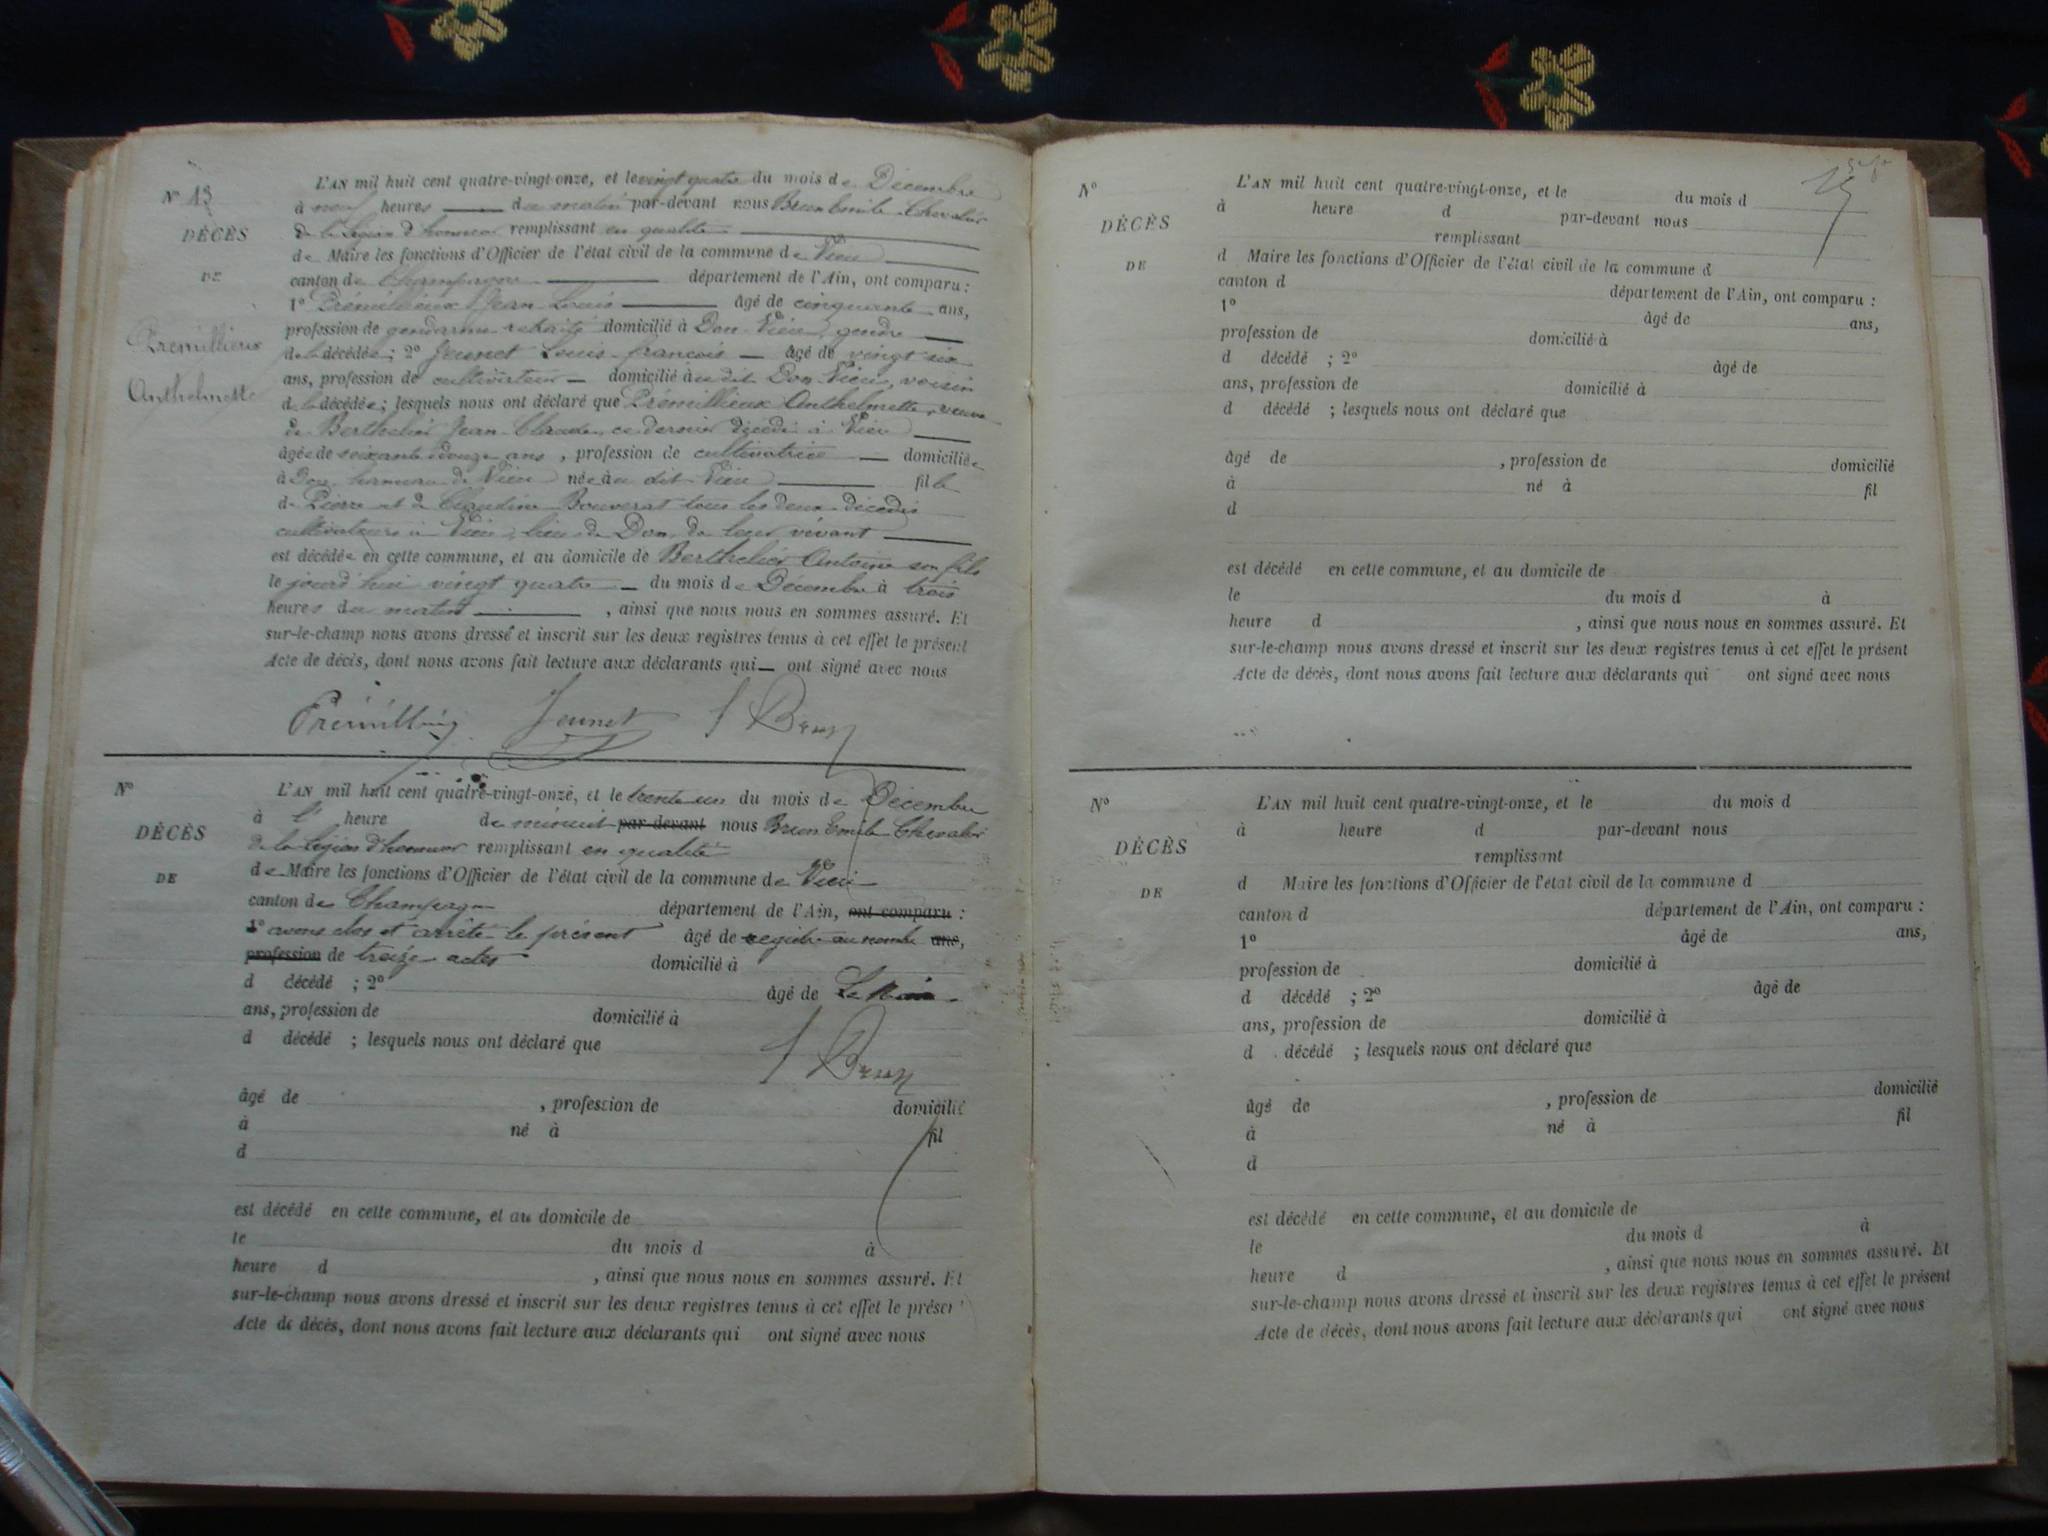 N° 13
DÉCÈS
DE
Prémillieux
Anthelmette
L'AN mil huit cent quatre-vingt-onze, et le vingt quatre du mois de Décembre
à neuf heures du matin par-devant nous Brun Emile Chevalier
de la Légion d'honneur remplissant en qualité
de Maire les fonctions d'Officier de l'état civil de la commune de Vieu
canton de Champagne département de l'Ain, ont comparu :
1° Prémillieux Jean Louis âgé de cinquante ans,
profession de gendarme retraité domicilié à Don Vieu, gendre
de la décédée ; 2° Jeunet Louis francois âgé de vingt six
ans, profession de cultivateur domicilié au dit Don Vieu, voisin
de la décédée ; lesquels nous ont déclaré que Prémillieux Anthelmette, veuve
de Berthelier Jean Claude, ce dernier décédé à Vieu
âgée de soixante douze ans, profession de cultivatrice domiciliée
à Don hameau de Vieu née au dit Vieu fille
de Pierre et de Claudine Bouverat tous les deux décédés
cultivateurs à Vieu, lieu de Don, de leur vivant
est décédée en cette commune, et au domicile de Berthelier Antoine son fils
le jourd'hui vingt quatre du mois de Décembre à trois
heures du matin , ainsi que nous nous en sommes assuré. Et
sur-le-champ nous avons dressé et inscrit sur les deux registres tenus à cet effet le présent
Acte de décès, dont nous avons fait lecture aux déclarants qui ont signé avec nous
Prémillieux Jeunet Brun
N°
DÉCÈS
DE
L'AN mil huit cent quatre-vingt-onze, et le trente un du mois de Décembre
à l' heure de minuit par-devant nous Brun Emile Chevalier
de la Légion d'honneur remplissant en qualité
de Maire les fonctions d'Officier de l'état civil de la commune de Vieu
canton de Champagne département de l'Ain, ont comparu :
1° avons clos et arrêté le présent âgé de registre au nombre ans,
profession de treize actes domicilié à
d décédé ; 2° âgé de Le Maire
ans, profession de domicilié à
d décédé ; lesquels nous ont déclaré que
Brun
âgé de , profession de domicilié
à né à fil
d
est décédé en cette commune, et au domicile de
le du mois d à
heure d , ainsi que nous nous en sommes assuré. Et
sur-le-champ nous avons dressé et inscrit sur les deux registres tenus à cet effet le présent
Acte de décès, dont nous avons fait lecture aux déclarants qui ont signé avec nous
N°
DÉCÈS
DE
L'AN mil huit cent quatre-vingt-onze, et le du mois d
à heure d par-devant nous
remplissant
d Maire les fonctions d'Officier de l'état civil de la commune d
canton d département de l'Ain, ont comparu :
1° âgé de ans,
profession de domicilié à
d décédé ; 2° âgé de
ans, profession de domicilié à
d décédé ; lesquels nous ont déclaré que
âgé de , profession de domicilié
à né à fil
d
est décédé en cette commune, et au domicile de
le du mois d à
heure d , ainsi que nous nous en sommes assuré. Et
sur-le-champ nous avons dressé et inscrit sur les deux registres tenus à cet effet le présent
Acte de décès, dont nous avons fait lecture aux déclarants qui ont signé avec nous
N°
DÉCÈS
DE
L'AN mil huit cent quatre-vingt-onze, et le du mois d
à heure d par-devant nous
remplissant
d Maire les fonctions d'Officier de l'état civil de la commune d
canton d département de l'Ain, ont comparu :
1° âgé de ans,
profession de domicilié à
d décédé ; 2° âgé de
ans, profession de domicilié à
d décédé ; lesquels nous ont déclaré que
âgé de , profession de domicilié
à né à fil
d
est décédé en cette commune, et au domicile de
le du mois d à
heure d , ainsi que nous nous en sommes assuré. Et
sur-le-champ nous avons dressé et inscrit sur les deux registres tenus à cet effet le présent
Acte de décès, dont nous avons fait lecture aux déclarants qui ont signé avec nous